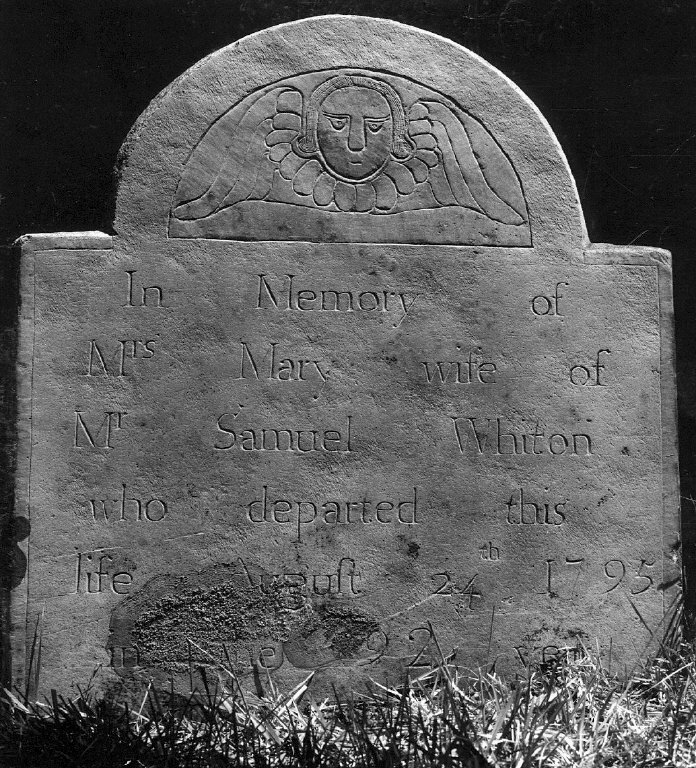 In Memory of
Mrs Mary wife of
Mr Samuel Whiton
who departed this
life Auguſt 24th 1795
in 92